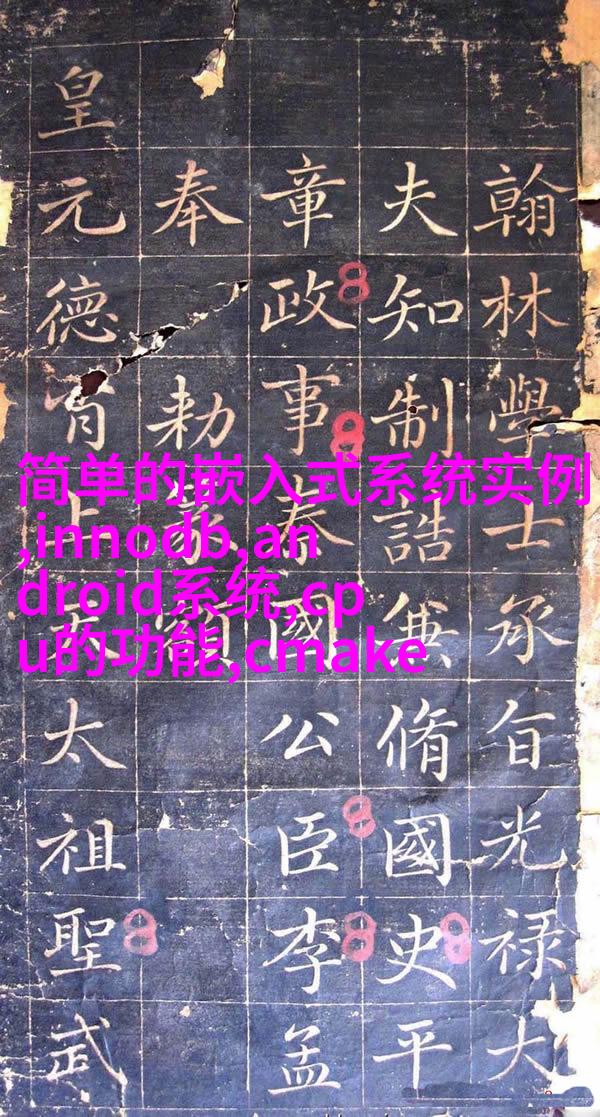 简单的嵌入式系统实例
,innodb,an
droid系统,cp
u的功能,cmake
翰林學士承旨光禄大
夫知制誥兼脩國史平
章政事秦國公臣李孟
奉勅篆額
皇元德上太祖聖武